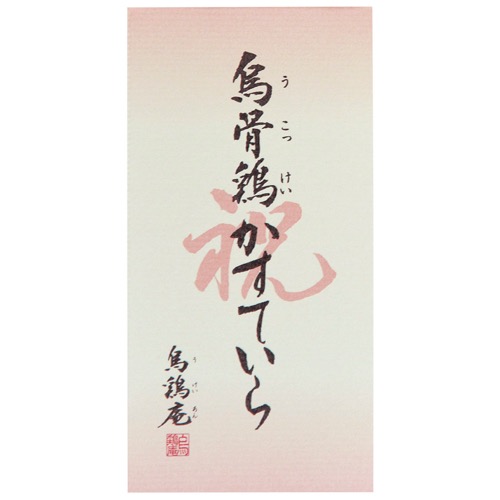 烏骨鶏かすていら
うこつけい
祝
烏鶏庵
うけいあん